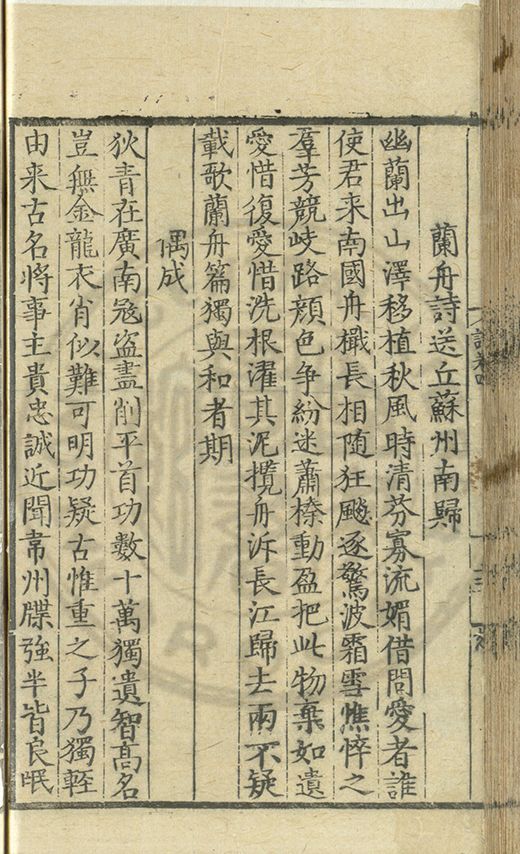 蘭舟詩送丘蘇州南歸
幽蘭出山澤移植秋風時清芬寡流媚借問愛者誰
使君来南國舟檥長相隨狂飈逐驚波霜雪憔悴之
羣芳競歧路顔色争紛迷蕭榛動盈把此物棄如遺
愛惜復愛惜洗根濯其泥攬舟泝長江歸去兩不疑
載歌蘭舟篇獨與和者期
偶成
狄青在廣南冦盗盡削平首功數十萬獨遺智高名
豈無金龍衣肖似難可明功疑古惟重之子乃獨輕
由来古名將事主貴忠誠近聞常州牒強半皆良氓